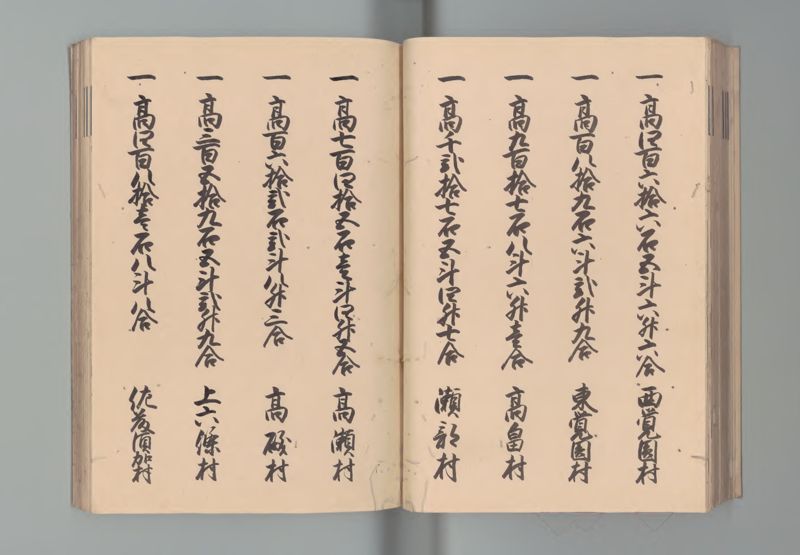 一 高四百六拾六石五斗六升六合 西覚園村
一 高百八拾九石六斗弐升九合 東覚園村
一 高九百拾七石八斗六升壱合 高畠村
一 高千弐拾七石五斗四升七合 瀬部村
一 高七百四拾五石壱斗四升五合 高瀬村
一 高百六拾弐石弐斗八升三合 高磯村
一 高三百五拾九石五斗弐升九合 上六條村
一 高四百八拾壱石八斗八合 佐藤須賀村